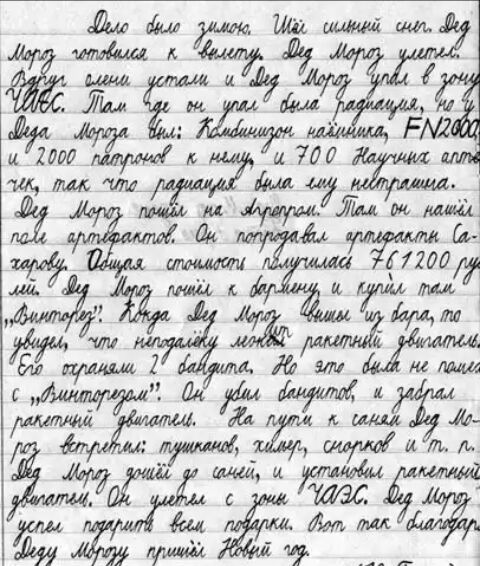 Дело было зимою. Шёл сильный снег. Дед
Мороз готовился к вылету. Дед Мороз улетел.
Вдруг олени устали и Дед Мороз упал в зону
ЧАЕС. Там где он упал была радиация, но у
Деда Мороза был: Комбинизон наёмника, FN2000,
и 2000 патронов к нему, и 700 Научных апте
чек, так что радиация была ему нестрашна.
Дед Мороз пошёл на Агропром. Там он нашёл
поле артефактов. Он попродавал артефакты Са-
харову. Общая стоимость получилась 761200 руб
лей. Дед Мороз пошёл к бармену и купил там
„Винторез". Кокда Дед Мороз вышы из бара, то
увидел, что неподалёку лежит ракетный двигатель.
Его охраняли 2 бандита. Но это была не помех
с „Винторезом". Он убил бандитов, и забрал
ракетный двигатель. На пути к саням Дед Мо-
роз встретил: тушканов, химер, снорков и т. п.
Дед Мороз дошёл до саней, и установил ракетный
двигатель. Он улетел с зоны ЧАЭС. Дед Мороз
успел подарить всем подарки. Вот так благодар
Деду Морозу пришёл Новый год.